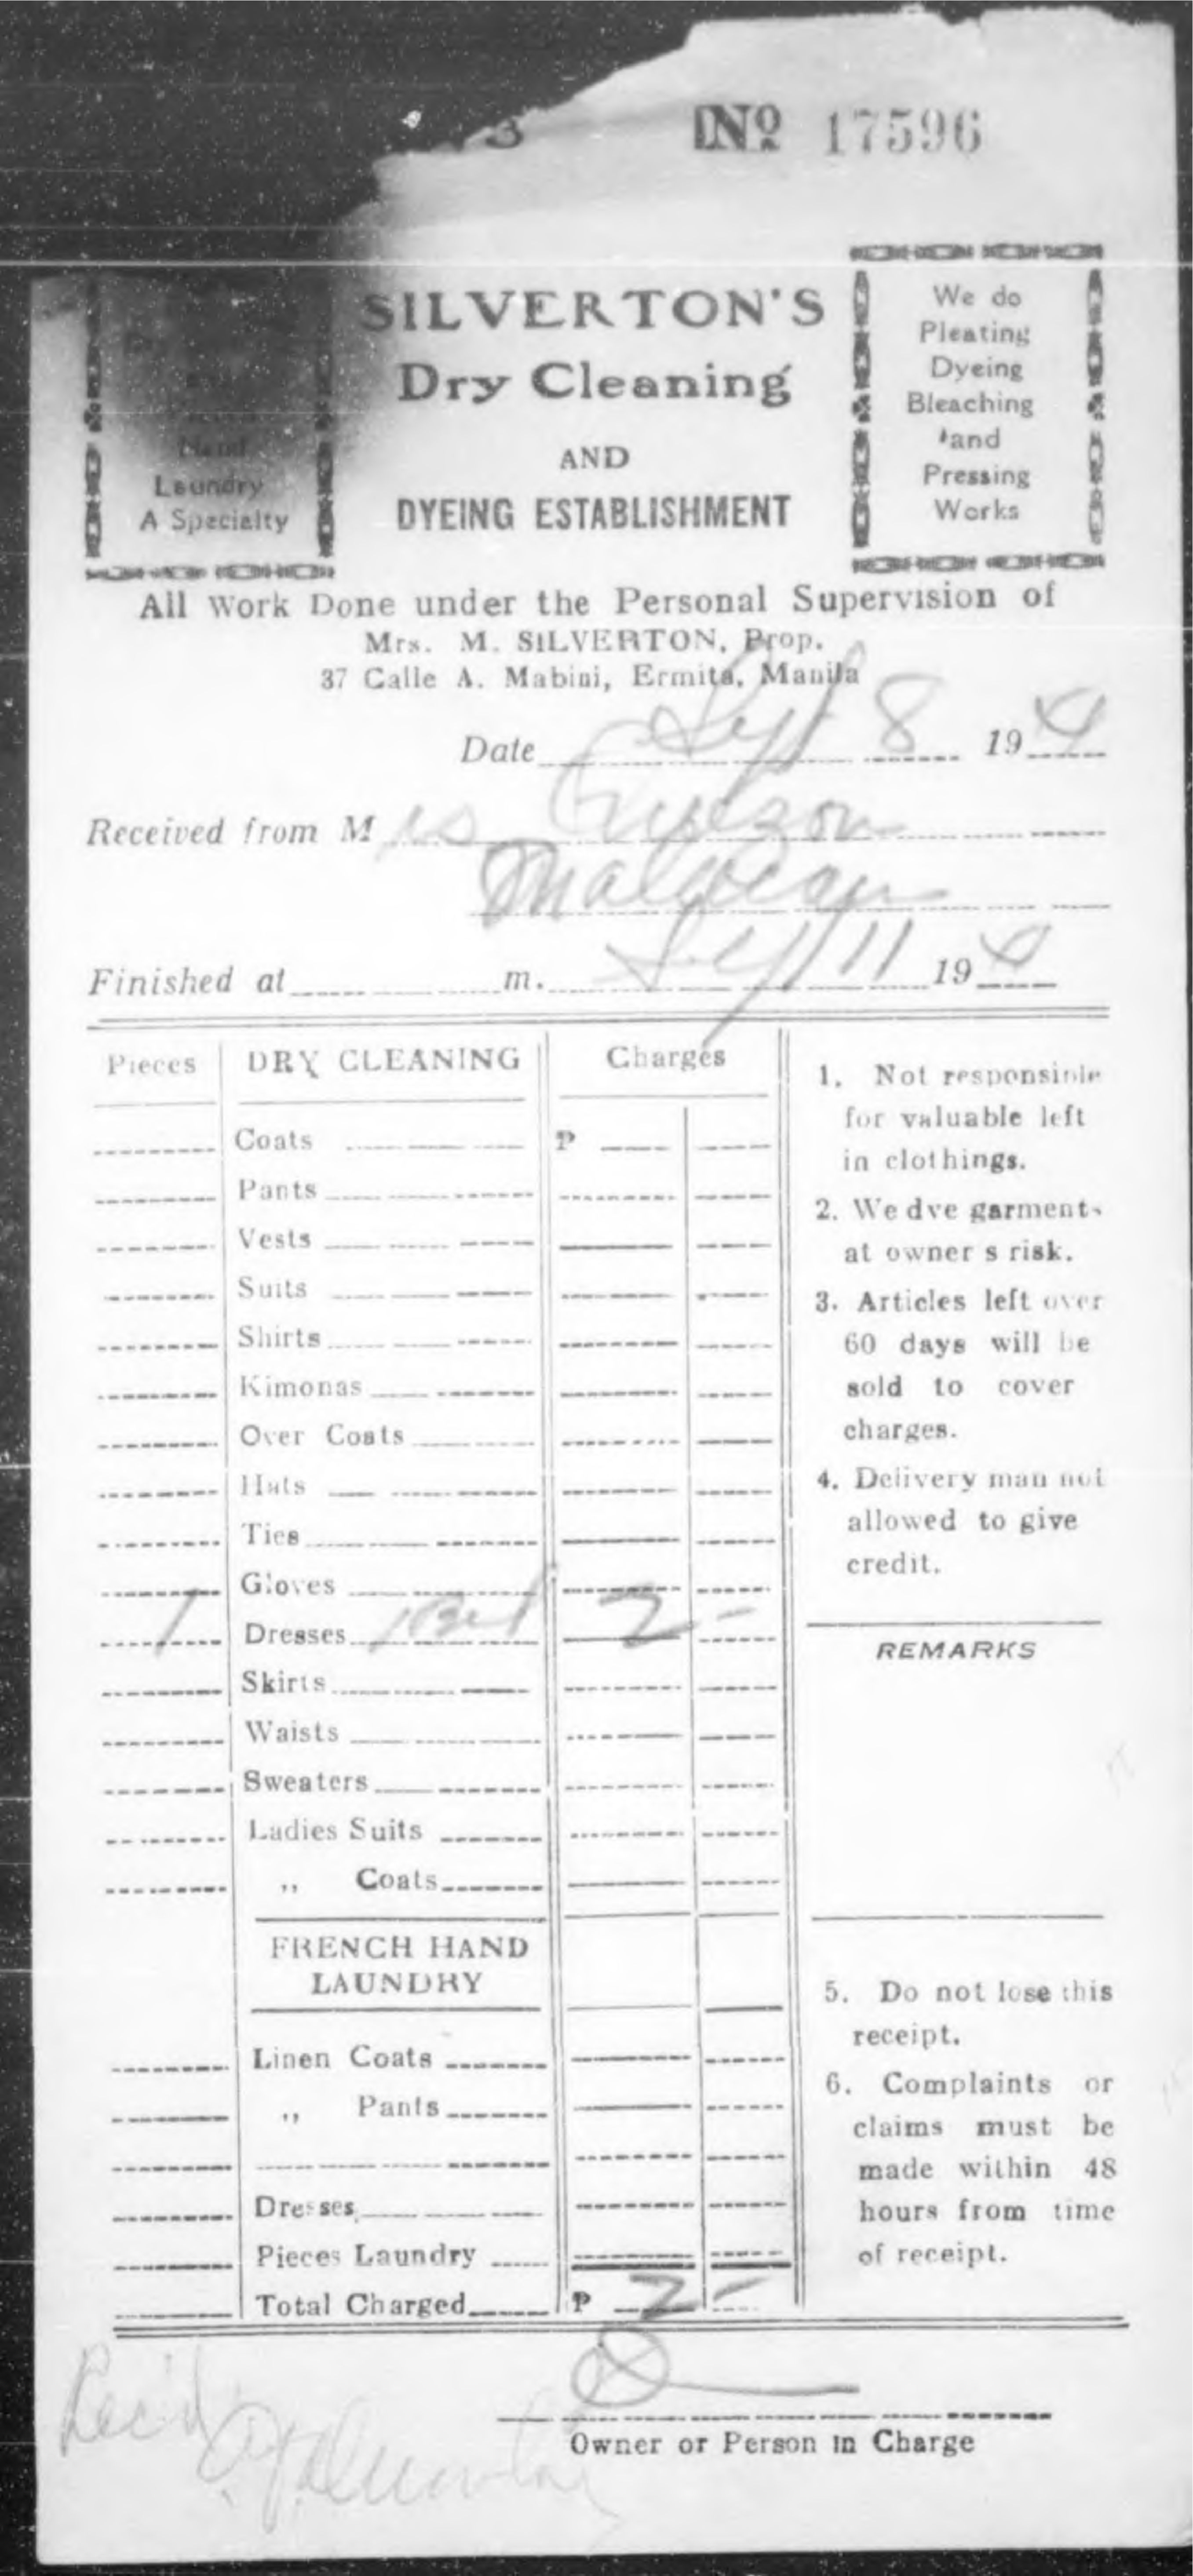 3 No 17596
Hand
Laundry
A Specialty
SILVERTON'S
Dry Cleaning
AND
DYEING ESTABLISHMENT
We do
Pleating
Dyeing
Bleaching
and
Pressing
Works
All Work Done under the Personal Supervision of
Mrs. M. SILVERTON, Prop.
37 Calle A. Mabini, Ermita, Manila
Date Sept 8 19 4
Received from M rs Quezon
Malacan
Finished at m. Sept 11 19 4
Pieces DRY CLEANING Charges
Coats P
Pants
Vests
Suits
Shirts
Kimonas
Over Coats
Hats
Ties
Gloves
1 Dresses 2 -
Skirts
Waists
Sweaters
Ladies Suits
,, Coats
FRENCH HAND
LAUNDRY
Linen Coats
,, Pants
Dresses
Pieces Laundry
Total Charged P 2 -
1. Not responsible
for valuable left
in clothings.
2. We dye garments
at owner s risk.
3. Articles left over
60 days will be
sold to cover
charges.
4. Delivery man not
allowed to give
credit.
REMARKS
5. Do not lose this
receipt.
6. Complaints or
claims must be
made within 48
hours from time
of receipt.
Rec'd
Owner or Person in Charge